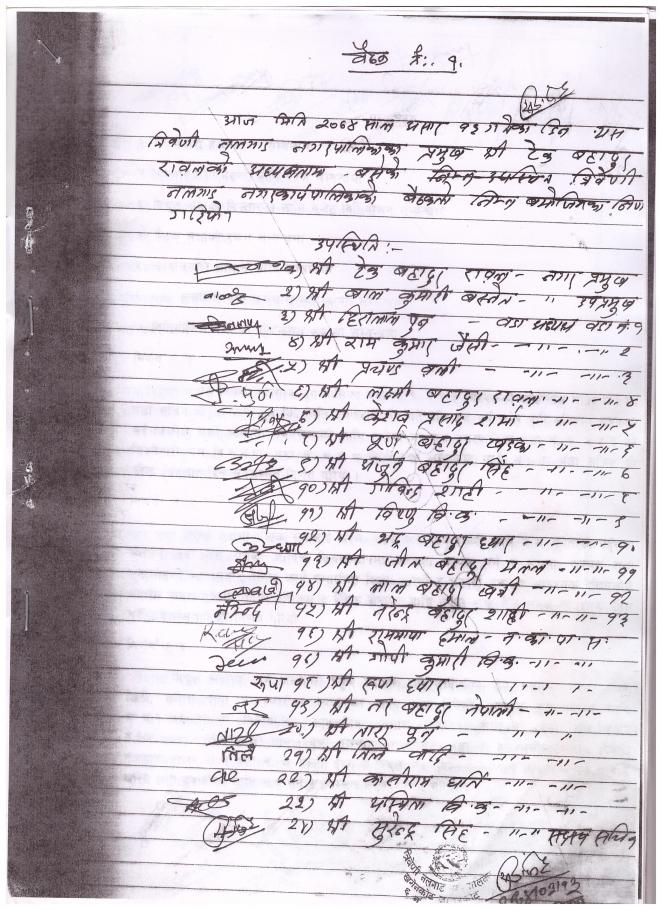 बैठक नं:. १.
आज मिति २०७४ साल असार १३ गतेका दिन यस
त्रिवेणी नलगाड नगरपालिकाका प्रमुख श्री टेक बहादुर
रावलको अध्यक्षतामा बसेको निम्न उपस्थित त्रिवेणी
नलगाड नगरकार्यपालिकाको बैठकले निम्न बमोजिमका निर्णय
गरियो।
उपस्थिति:-
१) श्री टेक बहादुर रावल - नगर प्रमुख
२) श्री बाल कुमारी बस्नेत - " उपप्रमुख
३) श्री हिरालाल पुन - वडा अध्यक्ष वडा नं. १
४) श्री राम कुमार जैसी - -"- -"- २
५) श्री प्रचण्ड वली - -"- -"- ३
६) श्री लक्ष्मी बहादुर रावल -"- -"- ४
७) श्री केशव प्रसाद शर्मा - -"- -"- ५
८) श्री पूर्ण बहादुर खड्का - -"- -"- ६
९) श्री अर्जुन बहादुर सिंह - -"- -"- ७
१०) श्री गोविन्द शाही - -"- -"- ८
११) श्री विष्णु वि.क. - -"- -"- ९
१२) श्री भद्र बहादुर घर्ती - -"- -"- १०
१३) श्री जीत बहादुर मल्ल - -"- -"- ११
१४) श्री लाल बहादुर खत्री - -"- -"- १२
नरेन्द्र १५) श्री नरेन्द्र बहादुर शाही - -"- -"- १३
१६) श्री हमाल - न. का. पा. स.
१७) श्री गोपी कुमारी वि.क. -"- "
रुपा १८) श्री रुपा -
नर १९) श्री नर बहादुर नेपाली - -"- -"-
तारा २०) श्री तारा पुन - " "
तिले २१) श्री तिले - -"- -"-
२२) श्री काशीराम घर्ति - -"- -"-
२३) श्री पवित्रा वि.क - -"- -"-
२४) श्री सुरेन्द्र सिंह - -"- सदस्य सचिव